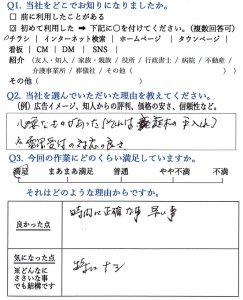 Q1. 当社をどこでお知りになりましたか。
□ 前に利用したことがある
☑ 初めて利用した ➡ 下記に○を付けてください。(複数回答可)
チラシ | インターネット検索 | ホームページ | タウンページ |
看板 | CM | DM | SNS |
紹介 (友人・知人 / 家族・親族 / 役所 / 行政書士 / 病院 / 不動産 /
介護事業所 / 葬儀社 / その他 ( ))
その他 ( )
Q2. 当社を選んでいただいた理由を教えてください。
(例) 広告イメージ、知人からの評判、価格の安さ、信頼性など。
必要なものがあった
電話受付の対応の良さ
Q3. 今回の作業にどのくらい満足していますか。
満足 まあまあ満足 普通 やや不満 不満
それはどのような理由からですか。
良かった点
時間に正確な事 早い事
気になった点
※どんなに
ささいな事
でも結構です
特にナシ